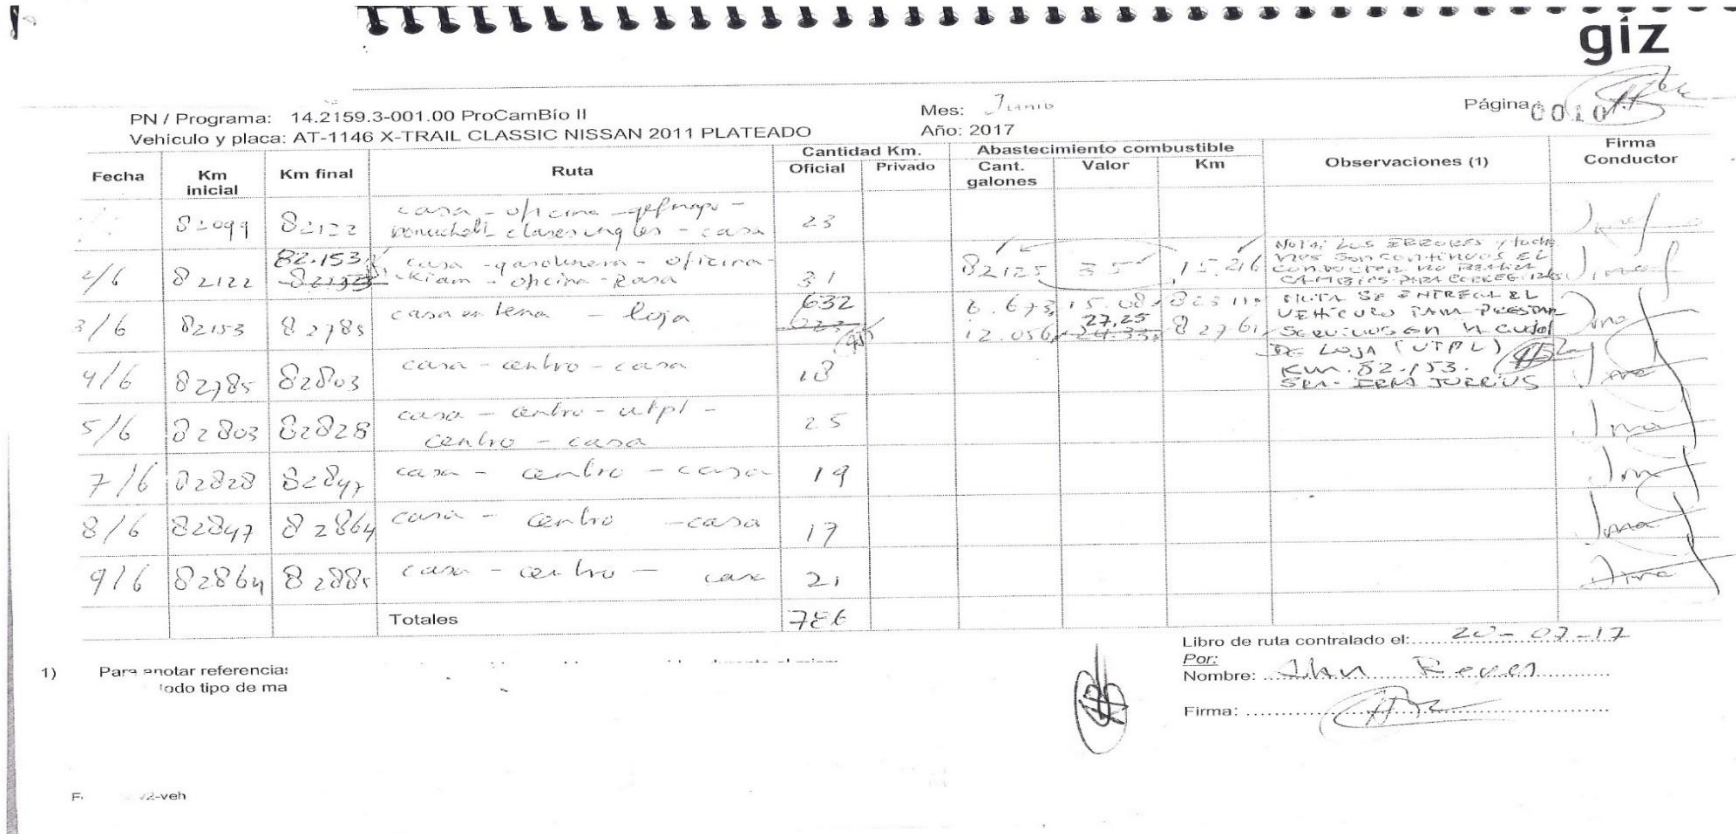 giz
PN / Programa: 14.2159.3-001.00 ProCamBío II
Mes: Junio
Página: 0010
Vehículo y placa: AT-1146 X-TRAIL CLASSIC NISSAN 2011 PLATEADO
Año: 2017
Fecha Km inicial Km final Ruta Cantidad Km. Oficial Privado Abastecimiento combustible Cant. galones Valor Km Observaciones (1) Firma Conductor
82099 82122 casa - oficina - - casa 23
2/6 82122 82.153 casa - gasolinera - oficina - Kiam - oficina - 31 82125 35 15.216
NOTA: LOS ERRORES y tachones SON CONTINUOS EL CONDUCTOR NO REALIZA CAMBIOS PARA CORREGIRLOS
3/6 82153 82785 casa - loja 632 6.673 15.08
12.056 27,25 82761
NOTA SE ENTREGA EL
VEHÍCULO PARA PRESTAR
SERVICIOS EN LA CIUDAD
DE LOJA (UTPL)
KM. 82.153.
4/6 82785 82803 casa - centro - casa 18
5/6 82803 82828 casa - centro - utpl -
centro - casa 25
7/6 82828 82847 casa - centro - casa 19
8/6 82847 82864 casa - centro - casa 17
9/6 82864 82885 casa - centro - casa 21
Totales 786
Libro de ruta contralado el: 20-07-17
Por:
Nombre: Jhn Reyes
Firma:
1) Para anotar referencia:
todo tipo de ma
-veh